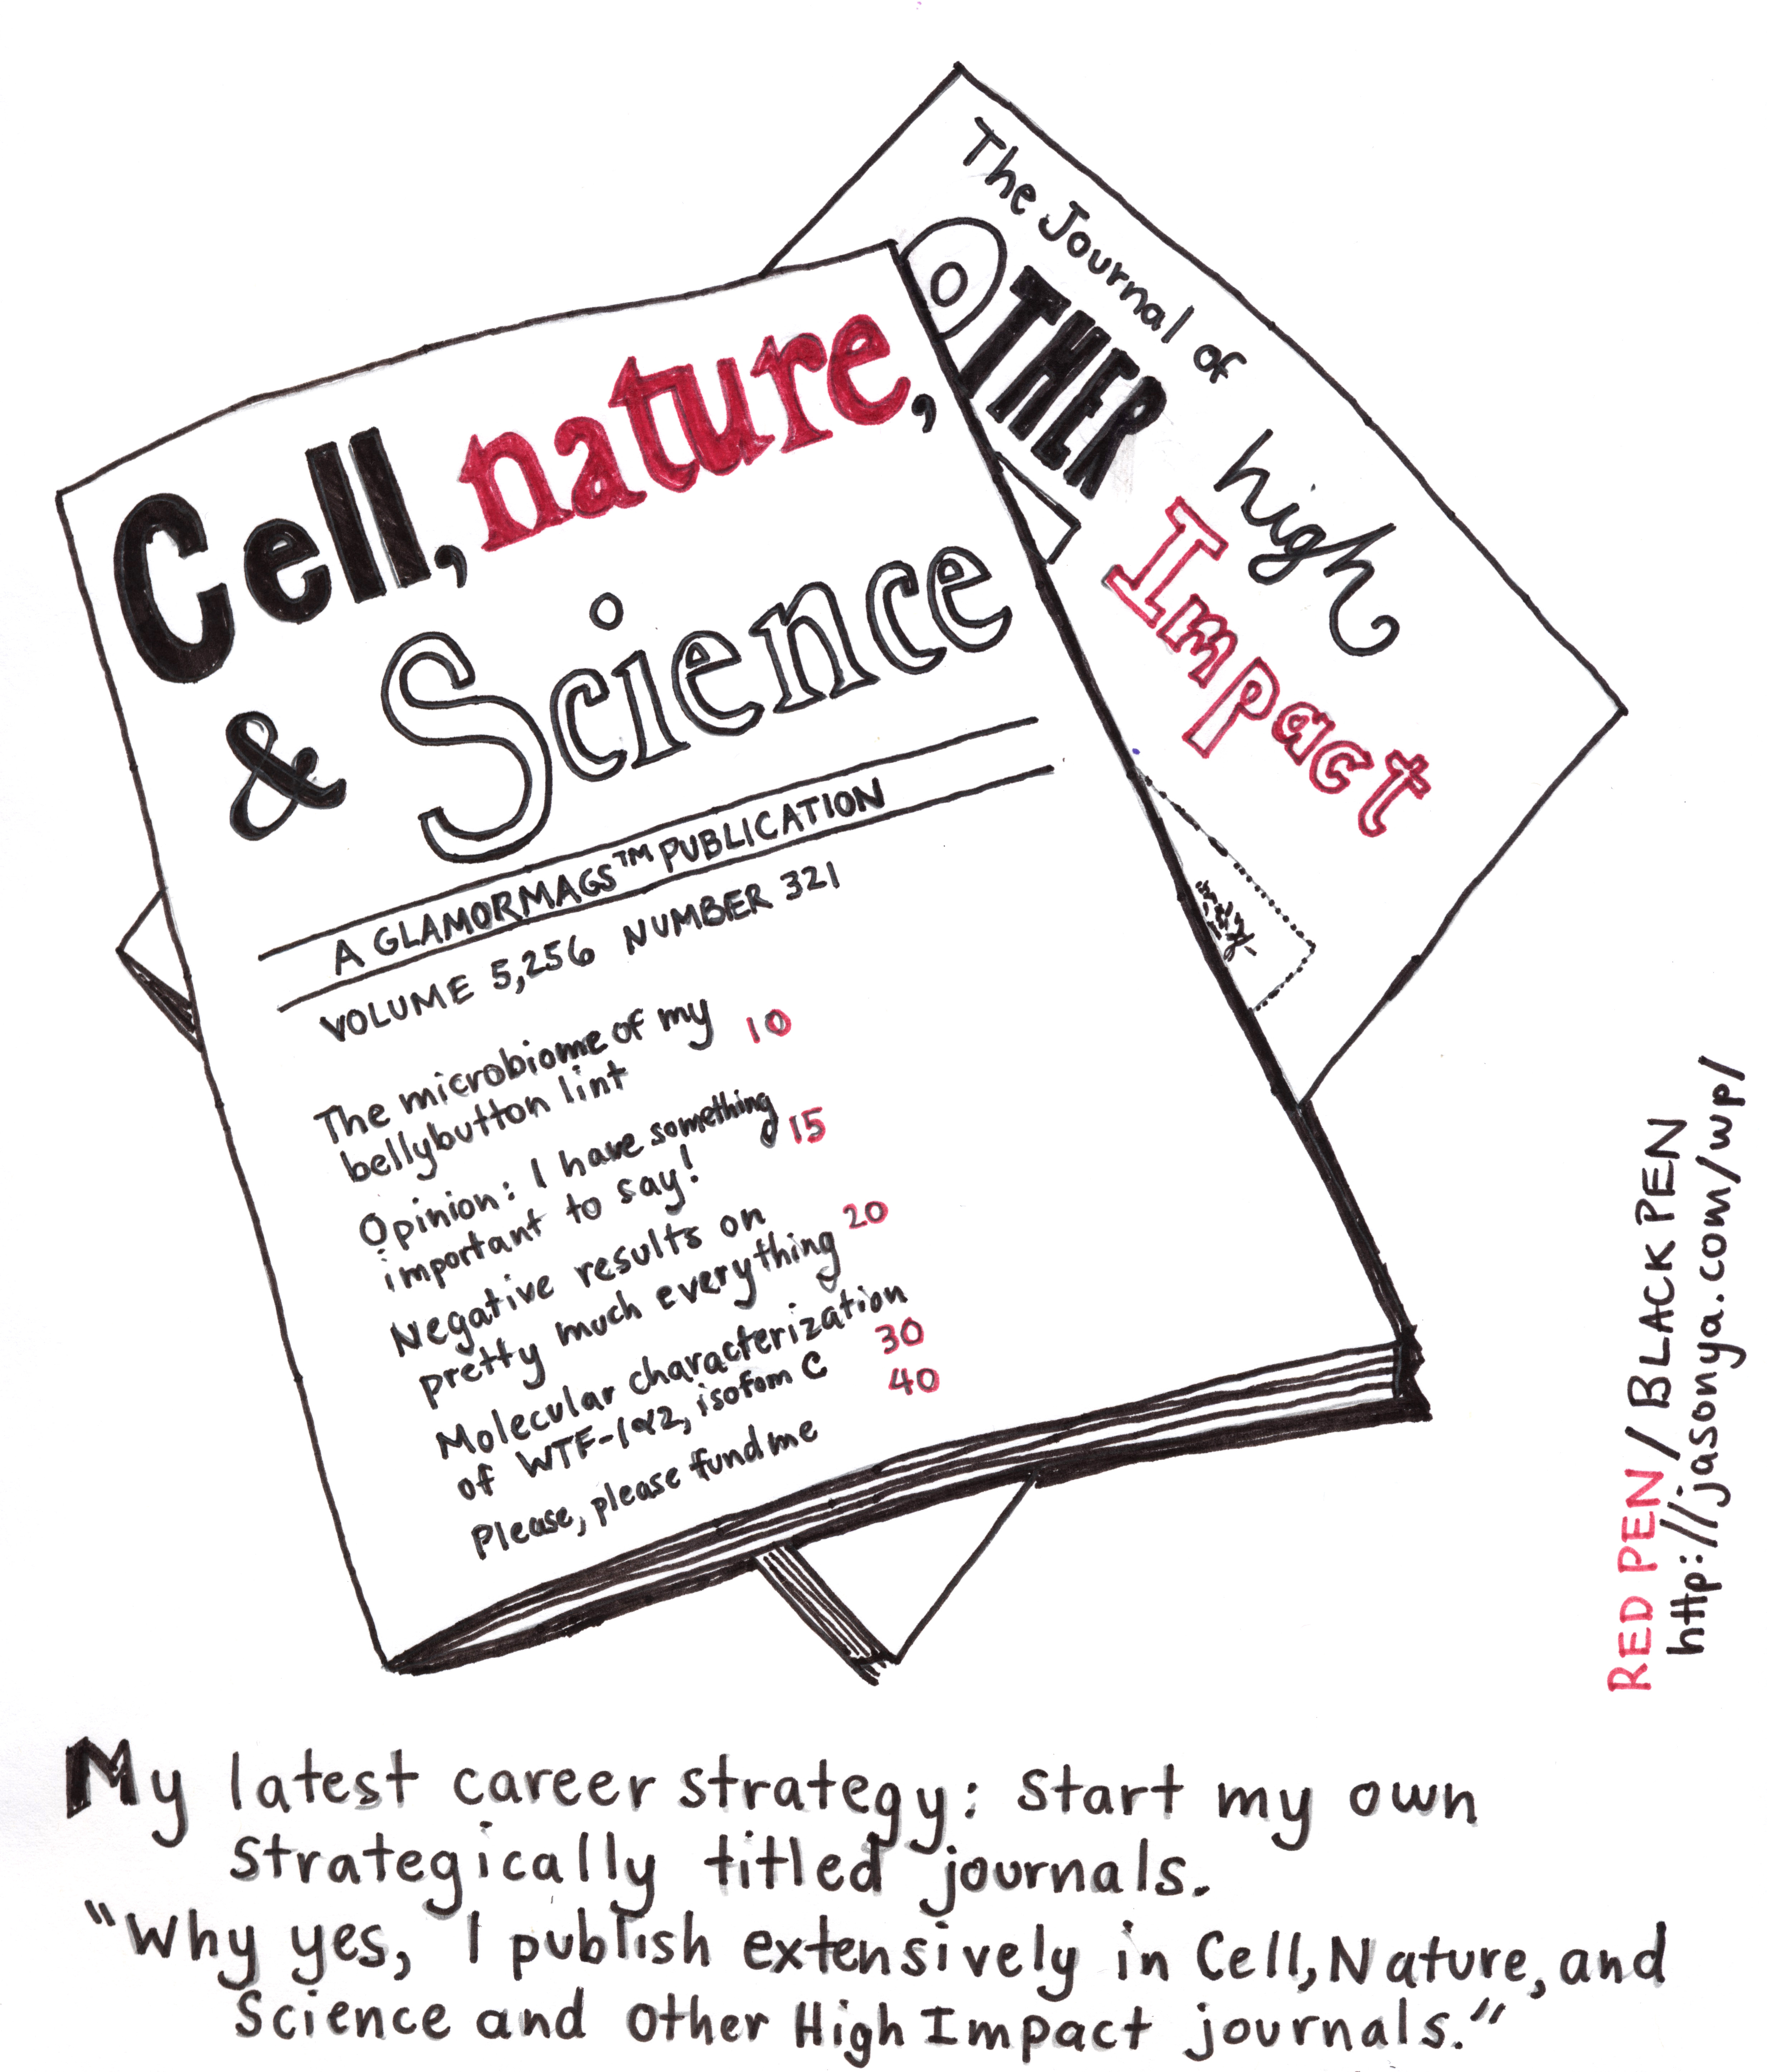 The Journal of
OTHER
high
Impact
Cell, nature,
& Science
A GLAMORMAGS™ PUBLICATION
VOLUME 5,256 NUMBER 321
The microbiome of my 10
bellybutton lint
Opinion: I have something 15
important to say!
Negative results on 20
pretty much everything
Molecular characterization 30
of WTF-1α2, isofom C
Please, please fund me 40
RED PEN / BLACK PEN
http://jasonya.com/wp/
My latest career strategy: Start my own
strategically titled journals.
"Why yes, I publish extensively in Cell, Nature, and
Science and Other High Impact journals."